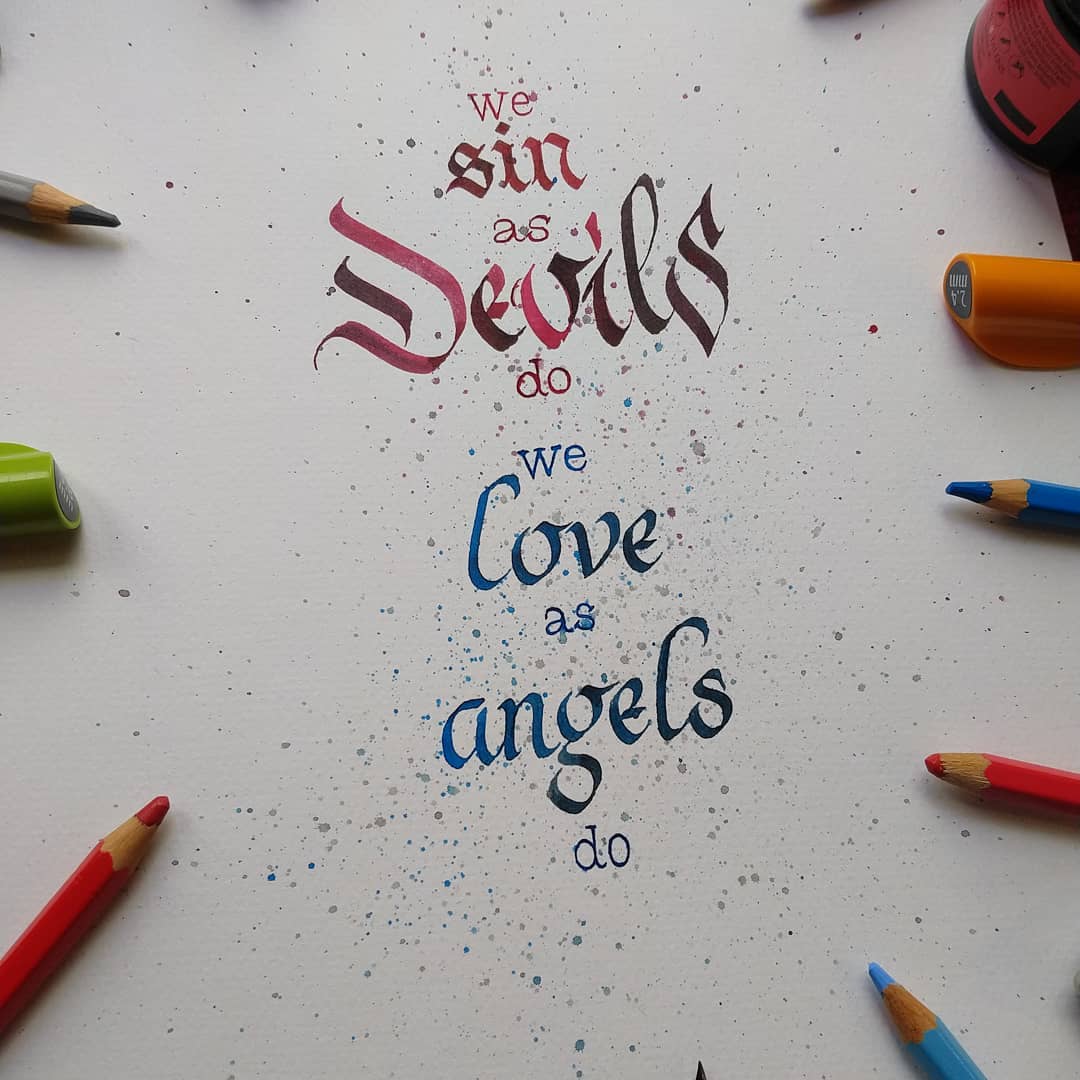 we
sin
as
Devils
do
we
love
as
angels
do
2.4
mm